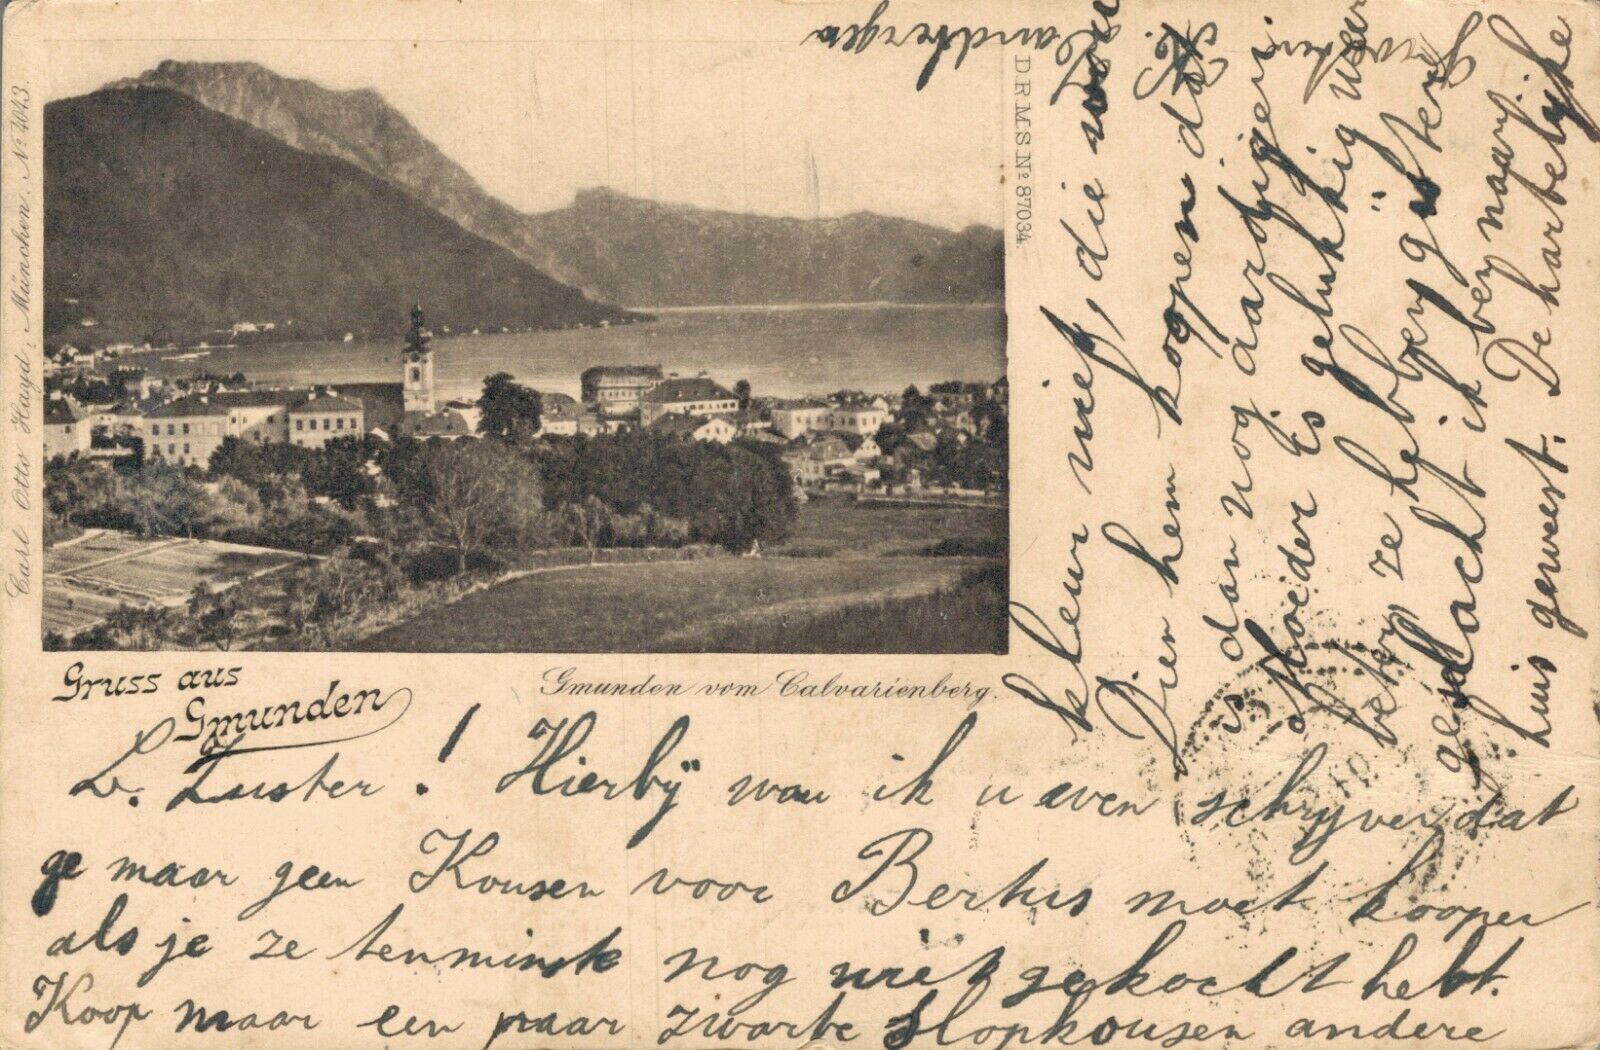 Carl Otto Hayd, München. No. 4013.
D R M S. No. 87034.
Gruss aus
Gmunden
Gmunden vom Calvarienberg.
L. Zuster! Hierbÿ wou ik u even schrijven dat
ge maar geen Kousen voor Bertus moet koopen
als je ze tenminste nog niet gekocht hebt.
Koop maar een paar zwarte Slopkousen andere
kleur niet, die wou
Dien hem koopen dat
is dan nog aardiger
Moeder is gelukkig weer
beter ze hebben gÿsteren
geslacht ik ben naar
huis geweest. De hartelyke
Groeten
L. Zandbergen